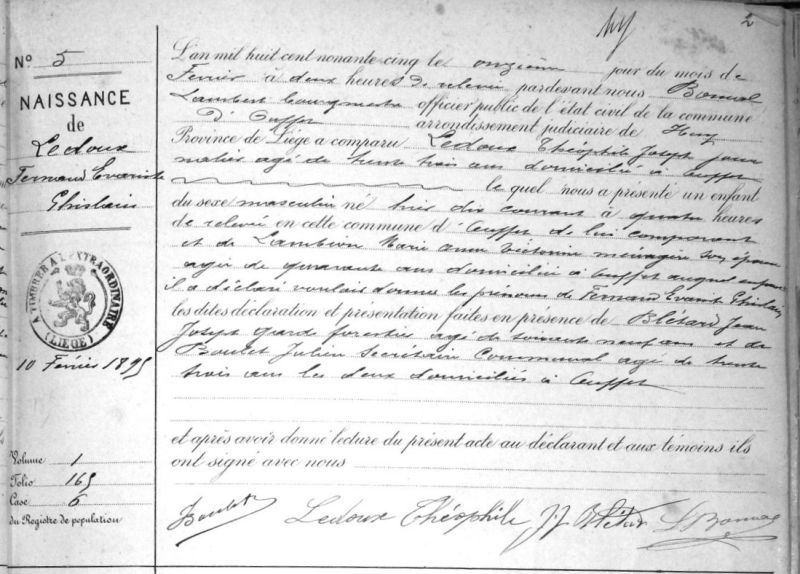 2
N° 5
NAISSANCE
de
Ledoux
Fernand Evariste
Ghislain
A TIMBRER A L'EXTRAORDINAIRE
(LIEGE)
10 Février 1895
Volume 1
Folio 165
Case 6
du Registre de population
L'an mil huit cent nonante cinq le onzième jour du mois de
Février à deux heures de relevée pardevant nous Bonmal
Lambert bourgmestre officier public de l'état civil de la commune
d'Ouffet arrondissement judiciaire de Huy
Province de Liège a comparu Ledoux Théophile Joseph jour
nalier agé de trente trois ans domicilié à Ouffet
lequel nous a présenté un enfant
du sexe masculin né hier dix courant à quatre heures
de relevée en cette commune d'Ouffet de lui comparant
et de Lambion Marie Anne Victorine ménagère son épouse
agée de quarante ans domiciliée à Ouffet auquel enfant
il a déclaré vouloir donner les prénoms de Fernand Evariste Ghislain
les dites déclaration et présentation faites en présence de Blétard Jean
Joseph garde forestier agé de soixante neuf ans et de
Boulet Julien Secrétaire Communal agé de trente
trois ans les deux domiciliés à Ouffet
et après avoir donné lecture du présent acte au déclarant et aux témoins ils
ont signé avec nous
Boulet Ledoux Théophile J.J Blétard L Bonmal